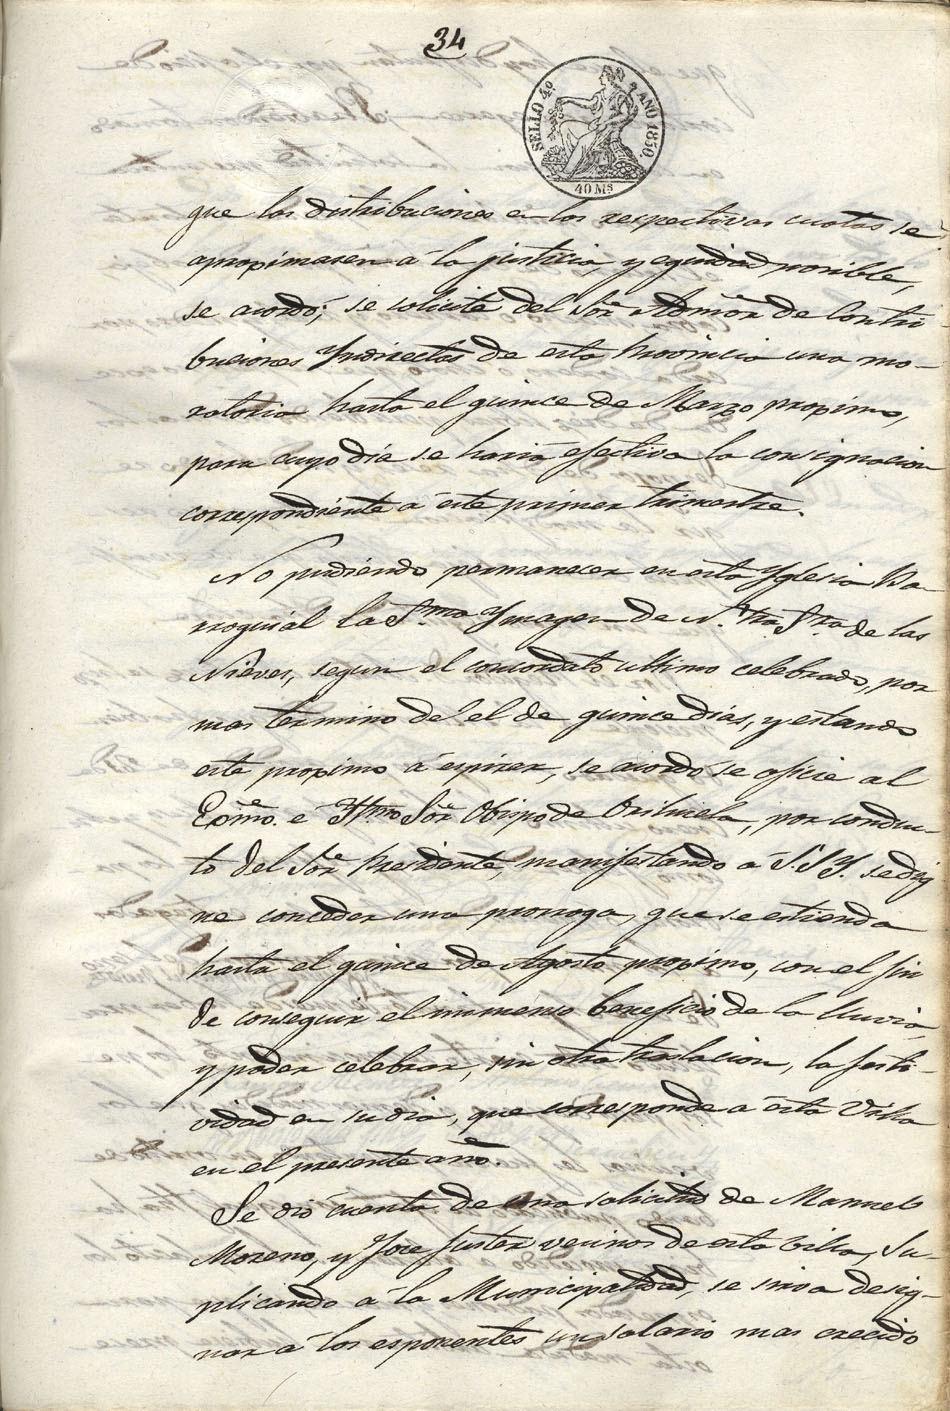 34
SELLO 4º AÑO 1850.
40 Ms
que las distribuciones en los respectivas cuotas se
aproximasen á la justicia, y equidad posible,
se acordó; se solicite del Sōr Admōr de Contri
buciones Yndirectas de esta Provincia una mo-
ratoria hasta el quince de Marzo proximo,
para cuyo dia se haria efectiva la consignacion
correspondiente á este primer trimestre.
No pudiendo permanecer en esta Yglesia Pa-
rroquial la S.ma Ymagen de N.tra S.ra de las
Nieves, segun el concordato ultimo celebrado, por
mas termino de el de quince dias, y estando
este proximo á espirar, se acordó se oficie al
Exm̄o. e Yltmo Sōr Obispo de Orihuela, por conduc-
to del Sōr Presidente, manifestando a S.S.Y. se dig
ne conceder una prorroga, que se estienda
hasta el quince de Agosto proximo, con el fin
de conseguir el inmenso beneficio de la lluvia,
y poder celebrar, sin otra traslacion, la festi-
vidad en su dia, que corresponde a esta Villa
en el presente año.
Se dió cuenta de una solicitud de Manuel
Moreno, y Jose Juster vecinos de esta Villa, su-
plicando á la Municipalidad, se sirva desig-
nar a los esponentes un salario mas crecido